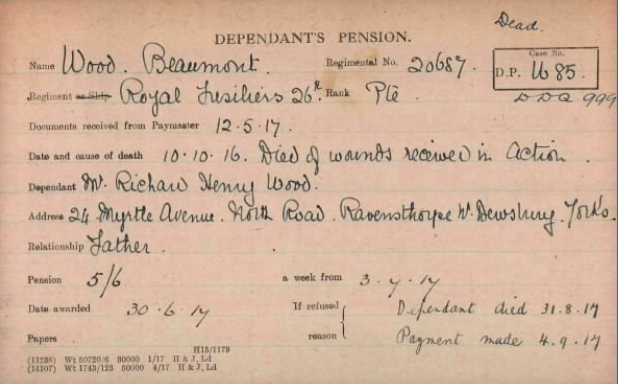 Dead.
DEPENDANT'S PENSION.
Name Wood. Beaumont. Regimental No. 20687.
Case No.
D.P. U 85.
Regiment or Ship Royal Fusiliers 26th. Rank Pte
DDQ 999
Documents received from Paymaster 12.5.17.
Date and cause of death 10.10.16. Died of wounds received in Action.
Dependant Mr. Richard Henry Wood.
Address 24 Myrtle Avenue. North Road. Ravensthorpe Nr. Dewsbury. Yorks.
Relationship Father.
Pension 5/6 a week from 3.7.17
Date awarded 30.6.17 If refused Dependant died 31.8.17
Papers reason Payment made 4.9.17
H15/1179
(11238) Wt 50720/6 50000 1/17 H & J, Ld
(14107) Wt 1743/123 50000 4/17 H & J, Ld